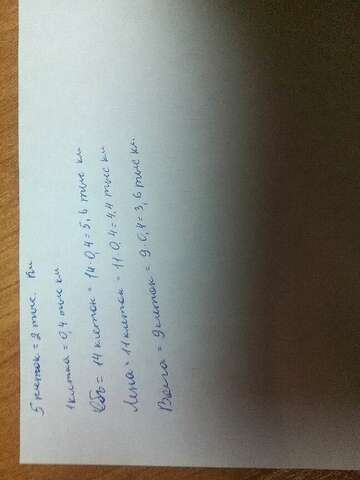 5 клеток = 2 тыс. км
1 клетка = 0,4 тыс км
Обь = 14 клеток = 14·0,4 = 5,6 тыс км
Лена = 11 клеток = 11·0,4 = 4,4 тыс км
Волга = 9 клеток = 9·0,4 = 3,6 тыс км.